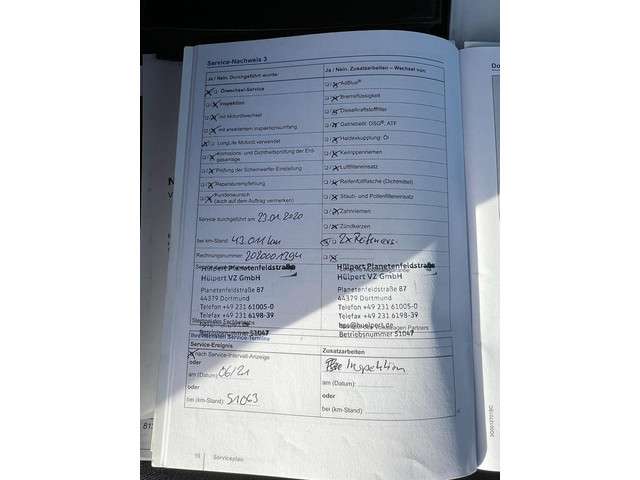 Service-Nachweis 3
Ja / Nein, Durchgeführt wurde:
Ölwechsel-Service
Inspektion
mit Motorölwechsel
mit erweitertem Inspektionsumfang
LongLife Motoröl verwendet
Emissions- und Dichtheitsprüfung der Erdgasanlage
Prüfung der Scheinwerfer-Einstellung
Reparaturempfehlung
Kundenwunsch
(auch auf dem Auftrag vermerken)
Service durchgeführt am: 29.01.2020
bei km-Stand: 43.011 km
Rechnungsnummer: 2020001394
Hülpert Planetenfeldstraße
Hülpert VZ GmbH
Planetenfeldstraße 87
44379 Dortmund
Telefon +49 231 61005-0
Telefax +49 231 6198-39
hps@huelpert.de
Betriebsnummer 51047
Ja / Nein, Zusatzarbeiten – Wechsel von:
AdBlue®
Bremsflüssigkeit
Dieselkraftstofffilter
Getriebeöl: DSG®, ATF
Haldexkupplung: Öl
Keilrippenriemen
Luftfiltereinsatz
Reifenfüllflasche (Dichtmittel)
Staub- und Pollenfiltereinsatz
Zahnriemen
Zündkerzen
2x Reifen
Hülpert Planetenfeldstraße
Hülpert VZ GmbH
Planetenfeldstraße 87
44379 Dortmund
Telefon +49 231 61005-0
Telefax +49 231 6198-39
hps@huelpert.de
Betriebsnummer 51047
Service-Termine
Service-Ereignis
nach Service-Intervall-Anzeige
oder
am (Datum): 06/21
oder
bei (km-Stand): 51063
Zusatzarbeiten
Inspektion
am (Datum):
oder
bei (km-Stand):
16 Serviceplan